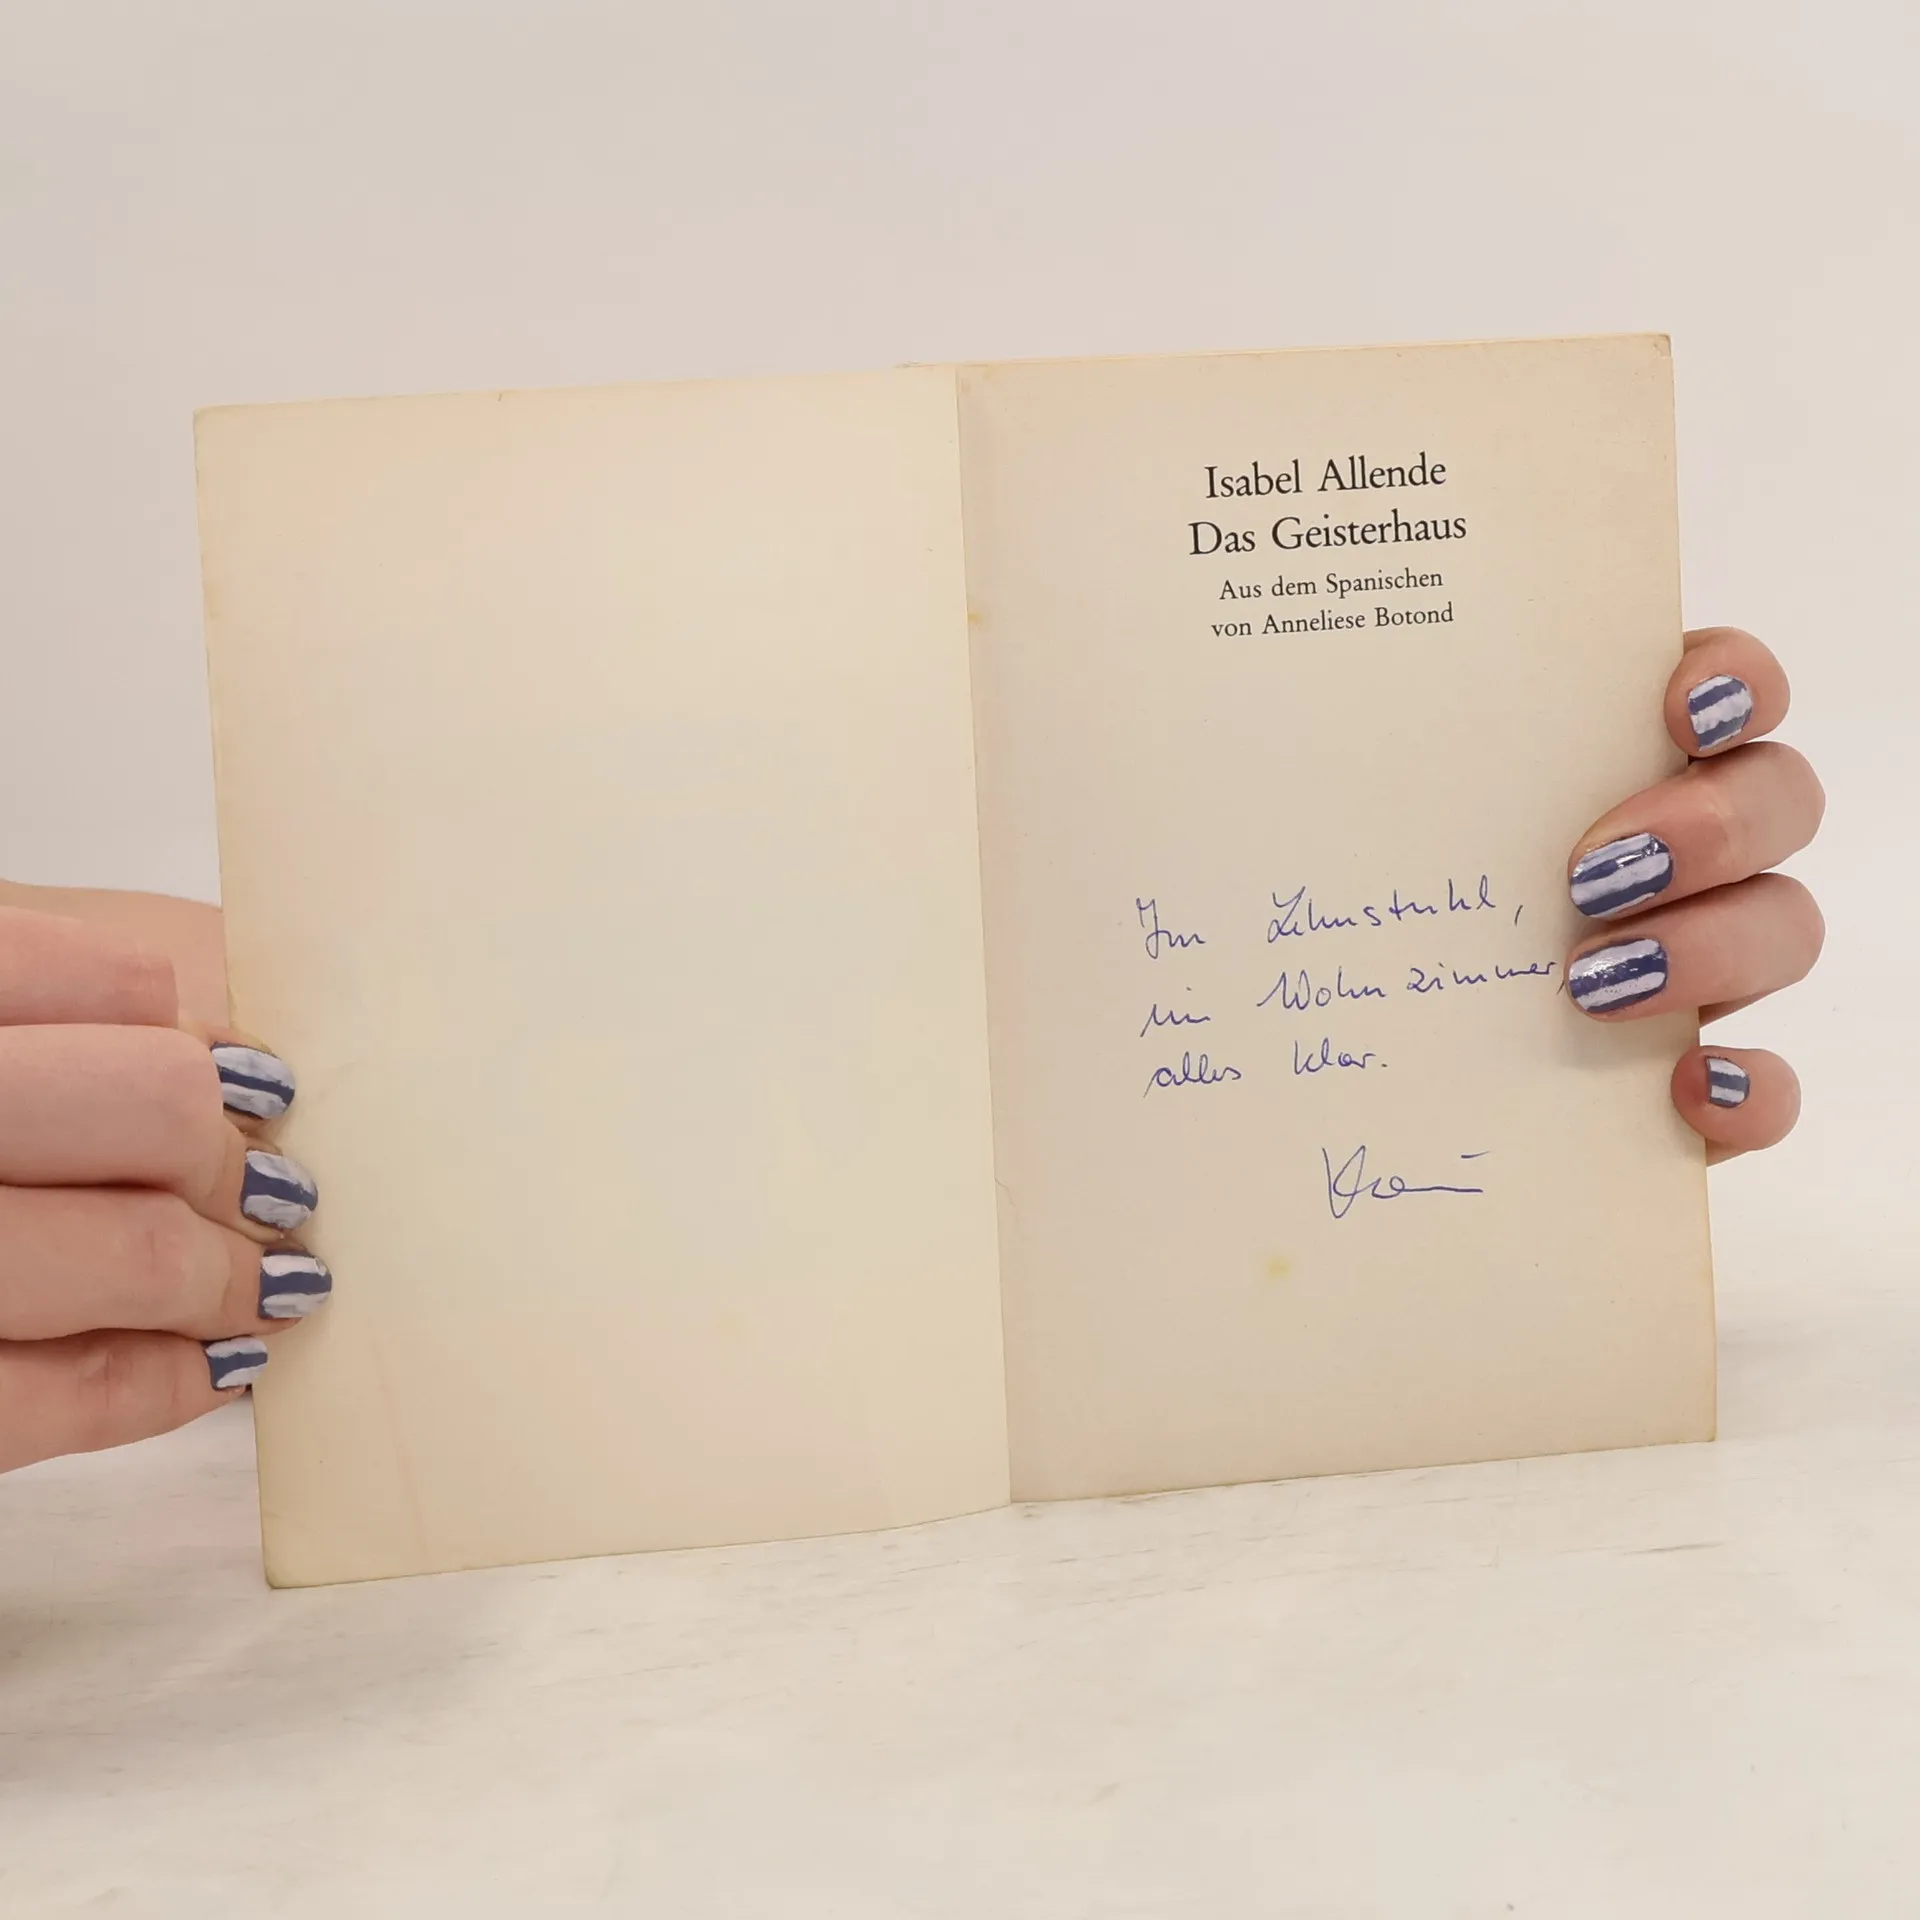 Isabel Allende
Das Geisterhaus
Aus dem Spanischen
von Anneliese Botond
Im Lehnstuhl,
im Wohnzimmer,
alles klar.